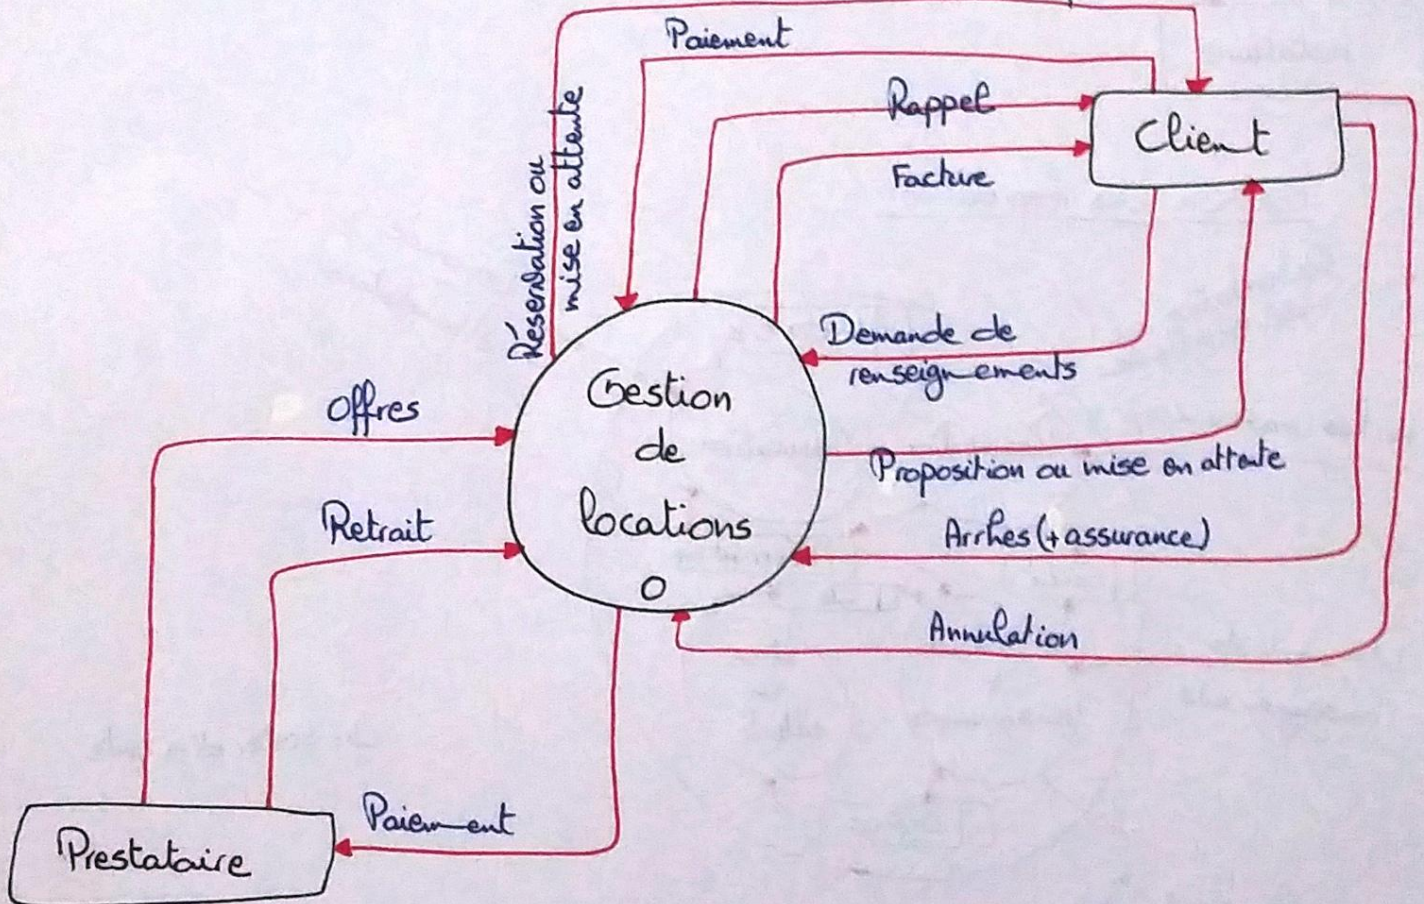 Paiement
Rappel
Client
Facture
Réservation ou
mise en attente
Demande de
renseignements
Gestion
de
locations
0
Offres
Proposition ou mise en attente
Retrait
Arrhes (+ assurance)
Annulation
Paiement
Prestataire